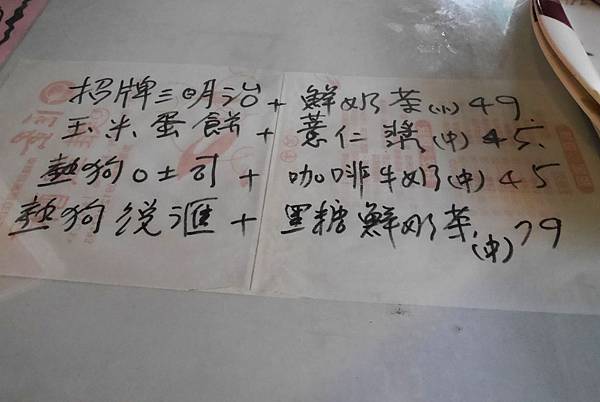 招牌三明治+鮮奶茶(小)49.
玉米蛋餅+薏仁漿(中)45.
熱狗吐司+咖啡牛奶(中)45
熱狗 + 黑糖鮮奶茶(中)79